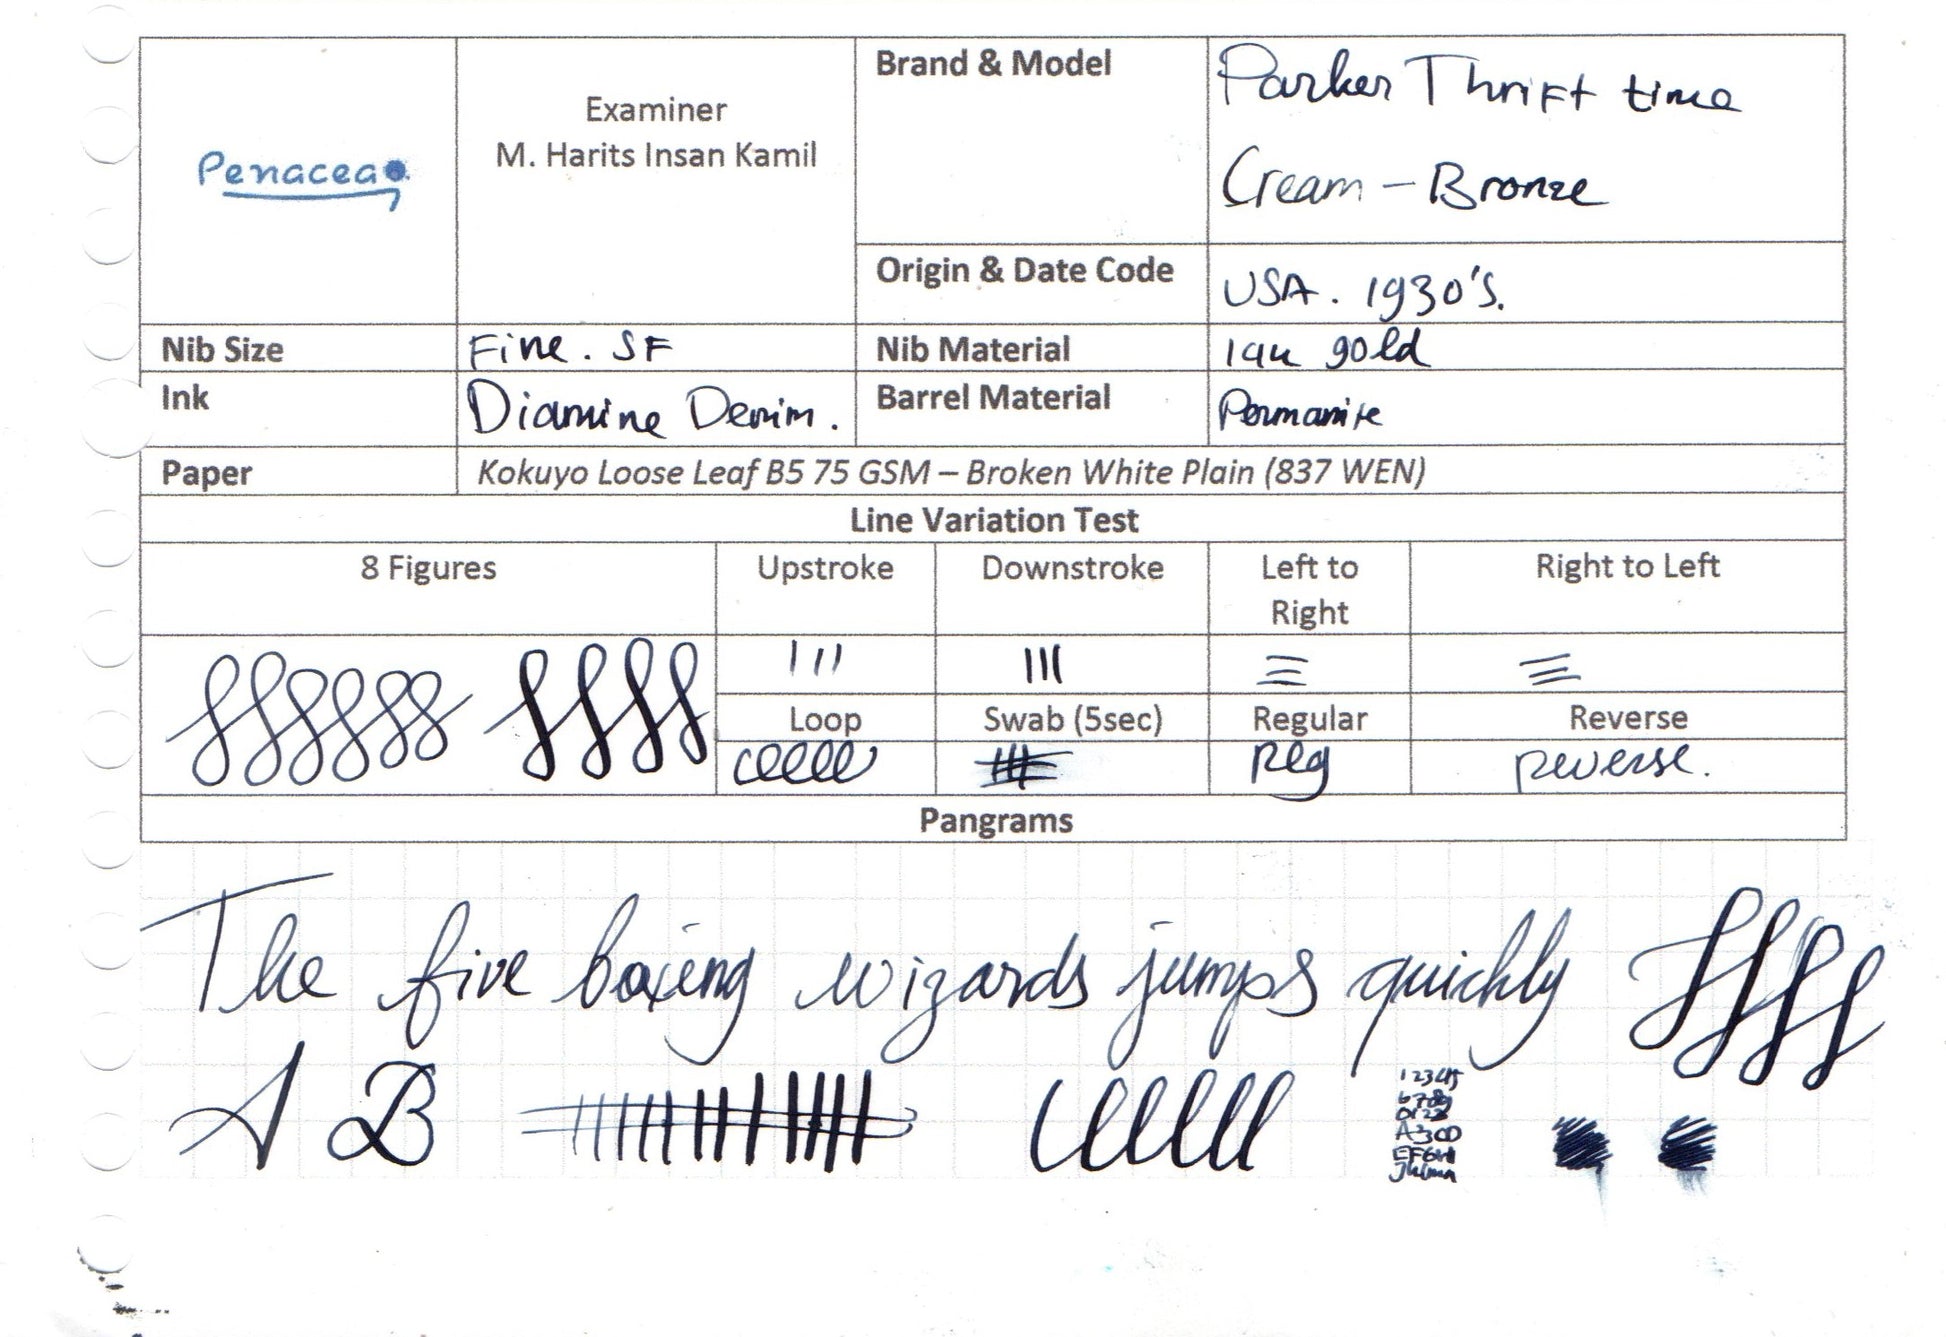 Penacea
Examiner
M. Harits Insan Kamil
Brand & Model
Parker Thrift time
Cream – Bronze
Origin & Date Code
USA. 1930's.
Nib Size
Fine. SF
Nib Material
14k gold
Ink
Diamine Denim.
Barrel Material
Permanite
Paper
Kokuyo Loose Leaf B5 75 GSM – Broken White Plain (837 WEN)
Line Variation Test
8 Figures
Upstroke
Downstroke
Left to
Right
Right to Left
Loop
Swab (5sec)
Regular
Reverse
Reg
reverse.
Pangrams
The five boxing wizards jumps quickly
A B
12345
6789
EFGH